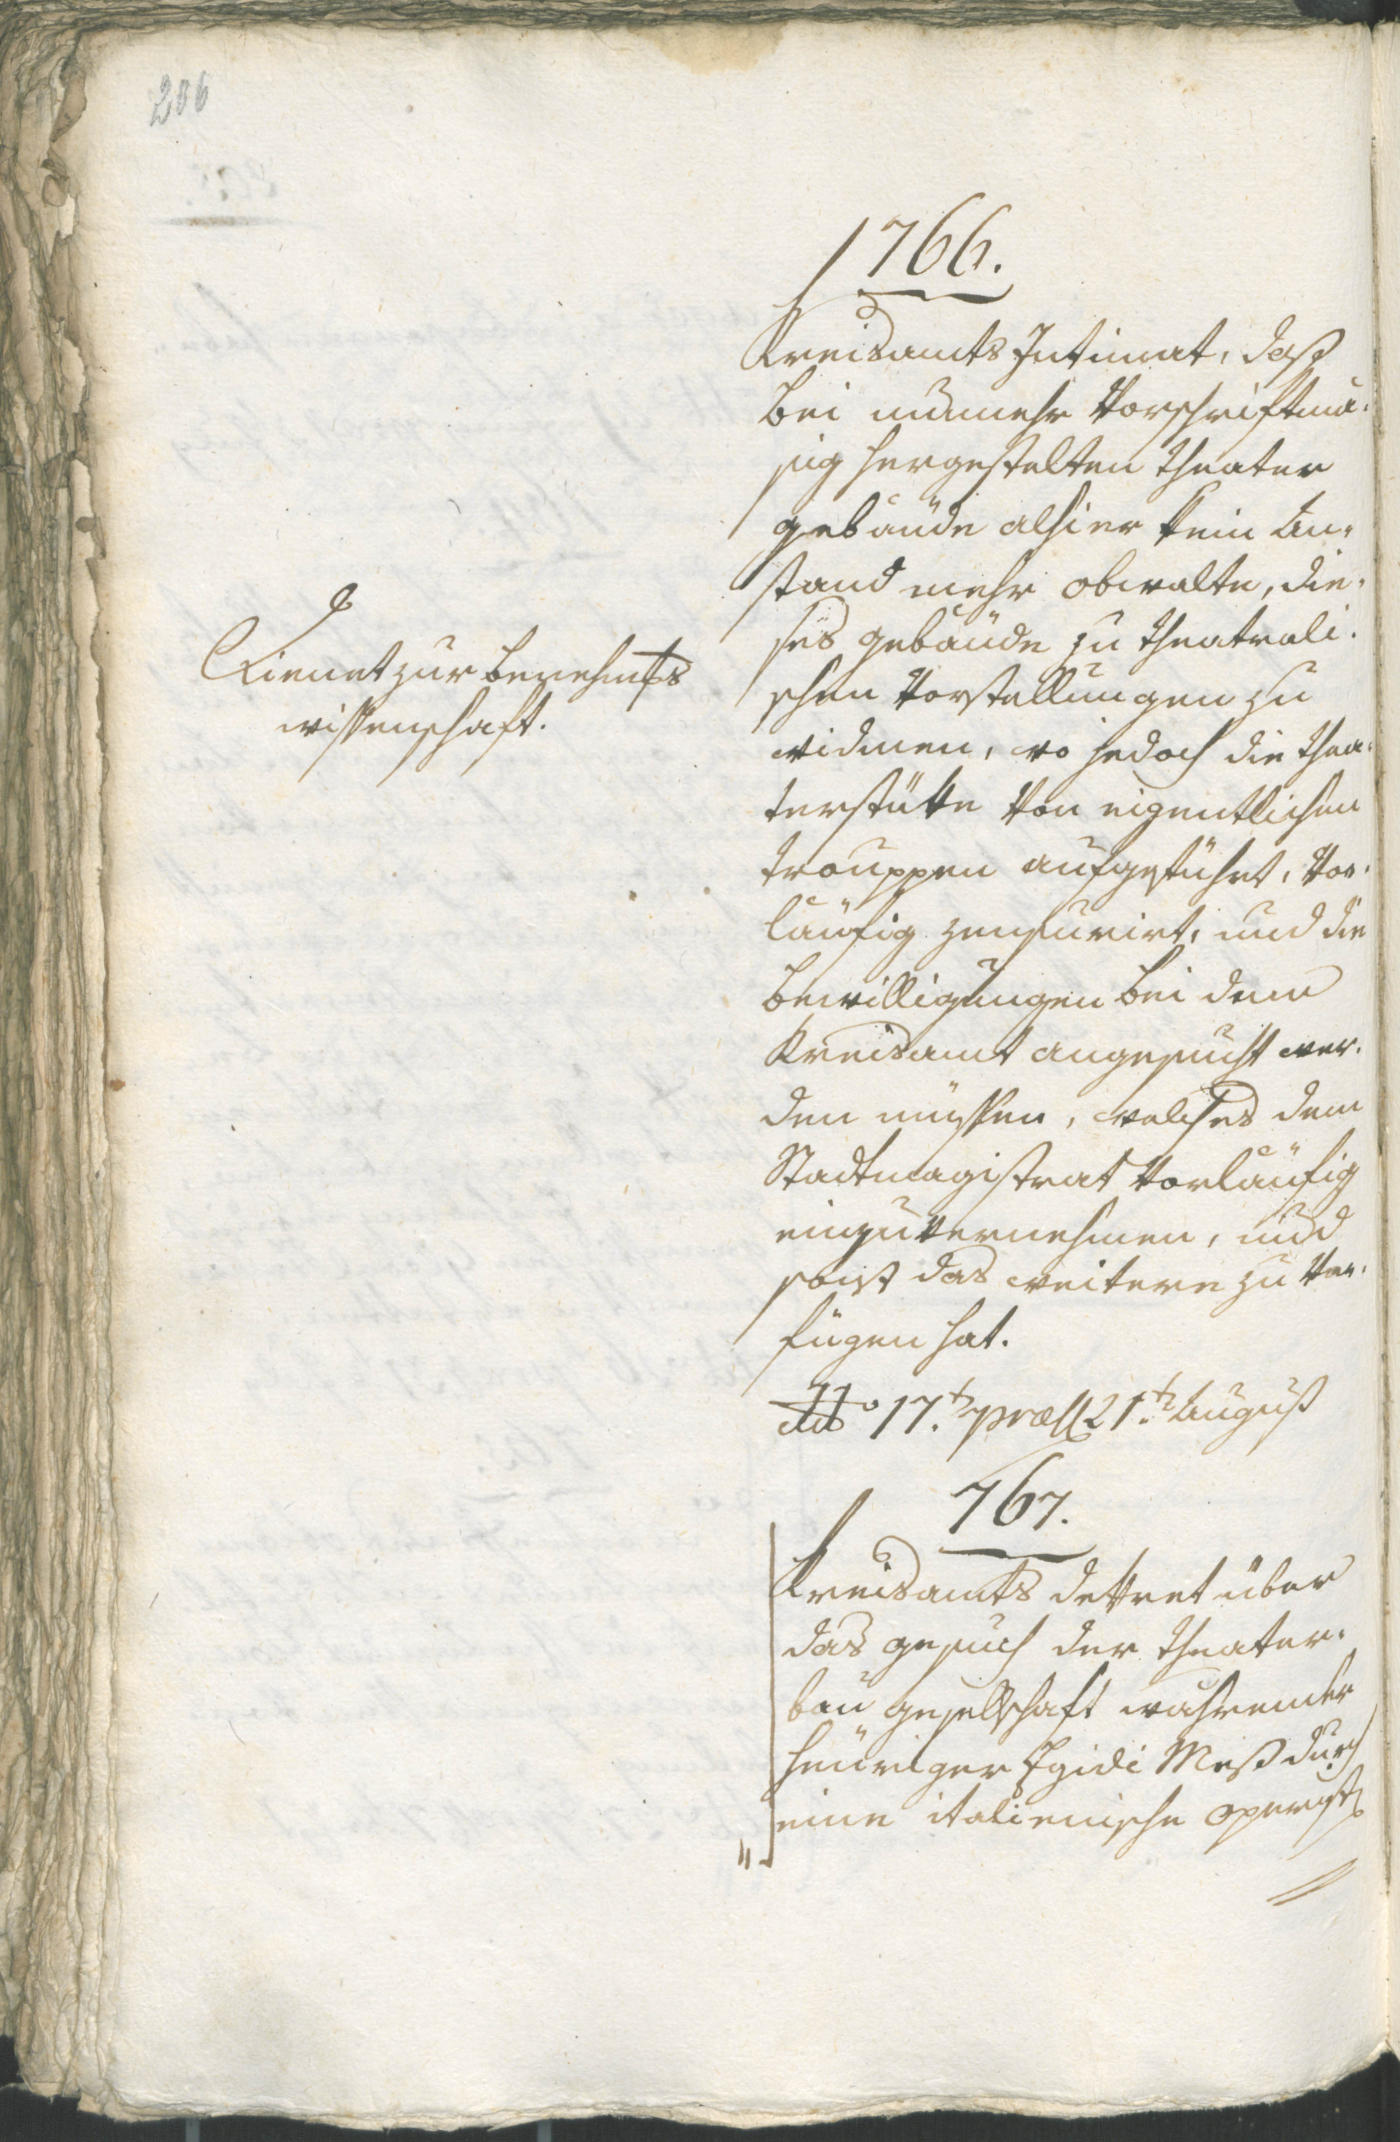 206
1766.
Kreisamts Intimat, daß
bei nunmehr Vorschriftmä-
sig hergestelten Theater
gebäude alhier kein An-
stand mehr obwalte, die-
ses gebäude zu theatrali-
schen Vorstellungen zu
widmen, wo jedoch die thea-
terstükke Von eigentlichen
trouppen aufgeführt, Vor-
läufig zensurirt, und die
bewilligungen bei dem
Kreisamt angesucht wer-
den müssen, welches dem
Stadtmagistrat Vorläufig
einzuvernehmen, und
sonst das weitere zu Ver-
fügen hat.
dto 17.t praes 21.t August
Dienet zur benehmungs
wissenschaft.
767.
Kreisamts dekret über
das gesuch der theater-
bau gesellschaft während
heuriger Egidi Meß durch
eine italienische operist